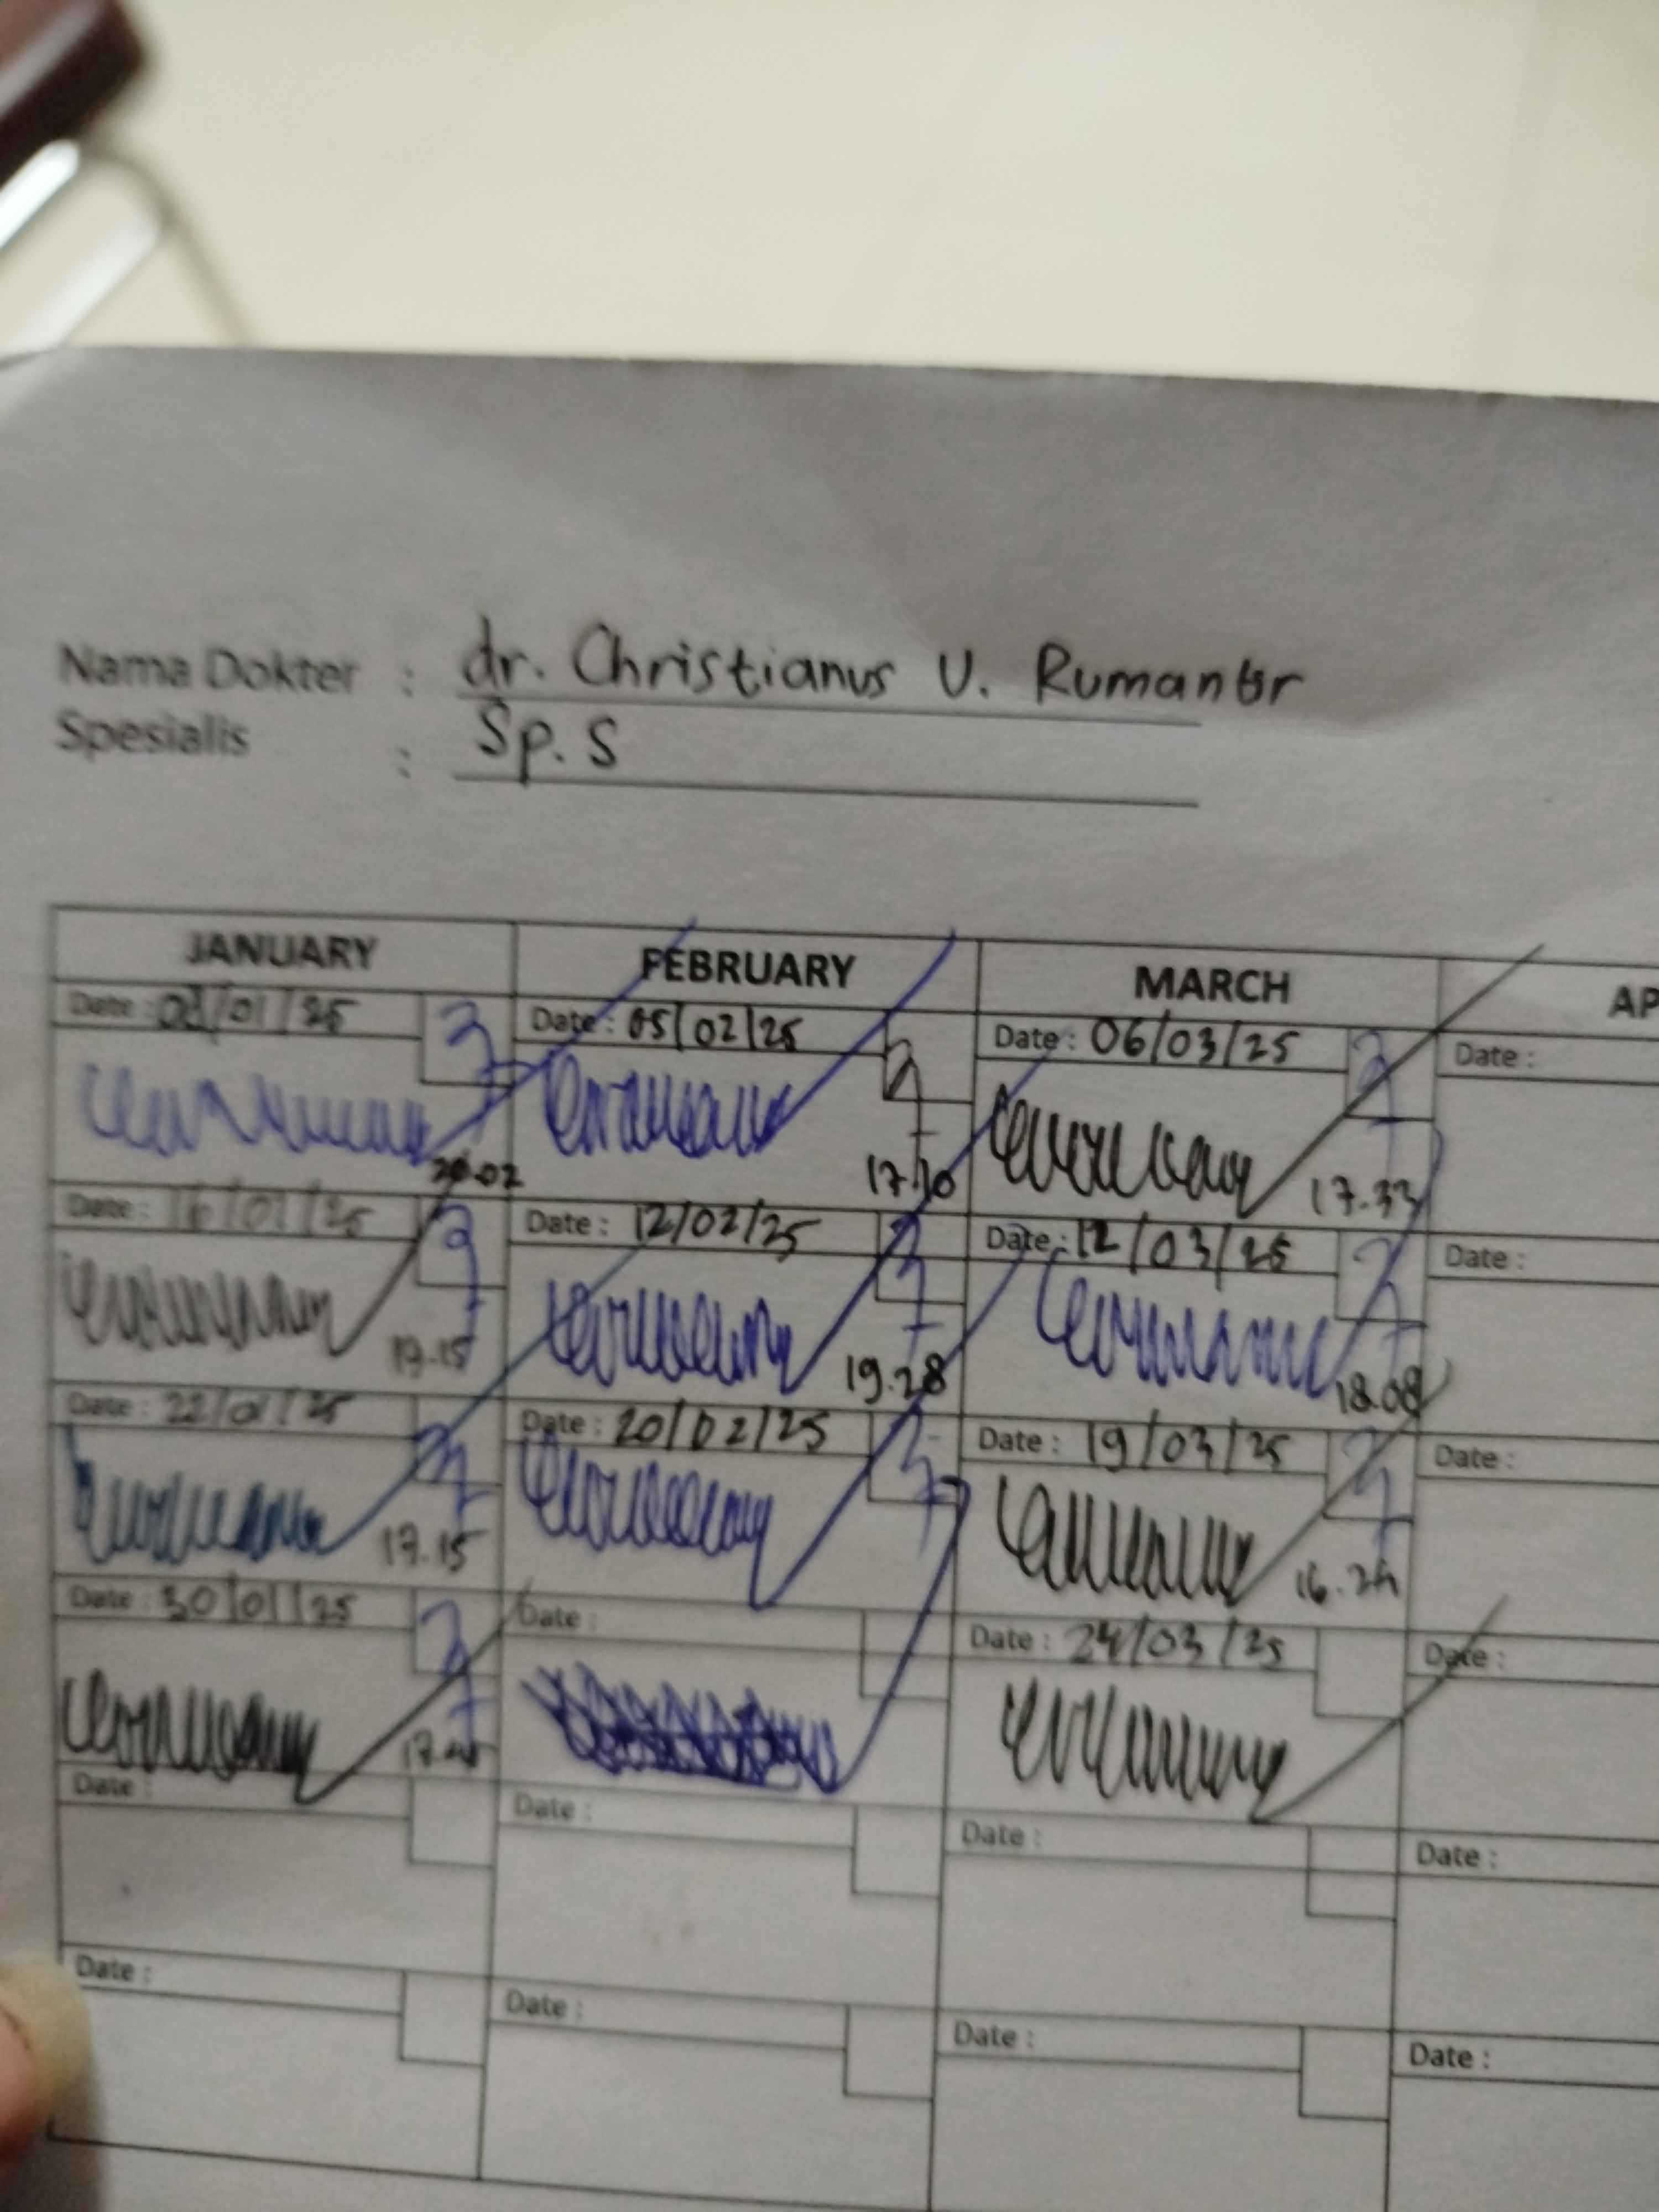 Nama Dokter : dr. Christianus U. Rumantor
Spesialis : Sp. S
JANUARY FEBRUARY MARCH AP
Date : /01/25 Date : 05/02/25 Date : 06/03/25 Date :
20.02 17.10 17.33
Date : 16/01/25 Date : 12/02/25 Date : 12/03/25 Date :
17.15 19.28 18.08
Date : 22/01/25 Date : 20/02/25 Date : 19/03/25 Date :
17.15 16.24
Date : 30/01/25 Date : Date : 24/03/25 Date :
Date : Date : Date : Date :
Date : Date : Date : Date :